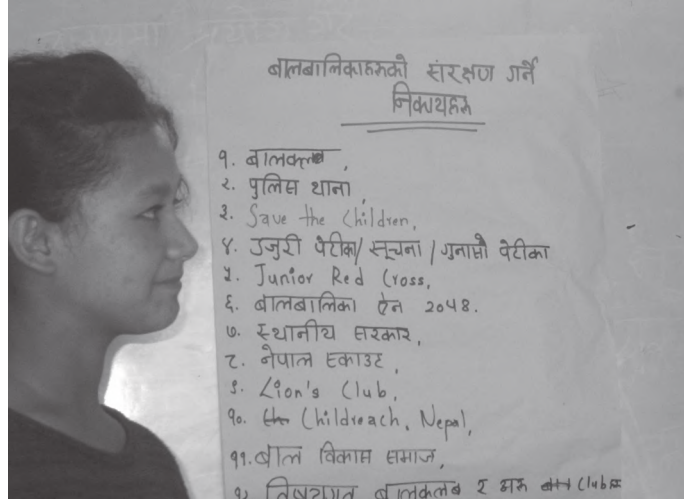 बालबालिकाहरुको संरक्षण गर्ने
निकायहरु
१. बालक्लब,
२. पुलिस थाना,
३. Save the Children,
४. उजुरी पेटीका/ सूचना / गुनासो पेटीका
५. Junior Red Cross,
६. बालबालिका ऐन 2048.
७. स्थानीय सरकार,
८. नेपाल स्काउट,
९. Lion's Club,
१०. Childreach, Nepal,
११. बाल विकास समाज,
१२ विषयगत बालक्लब र अरु Club